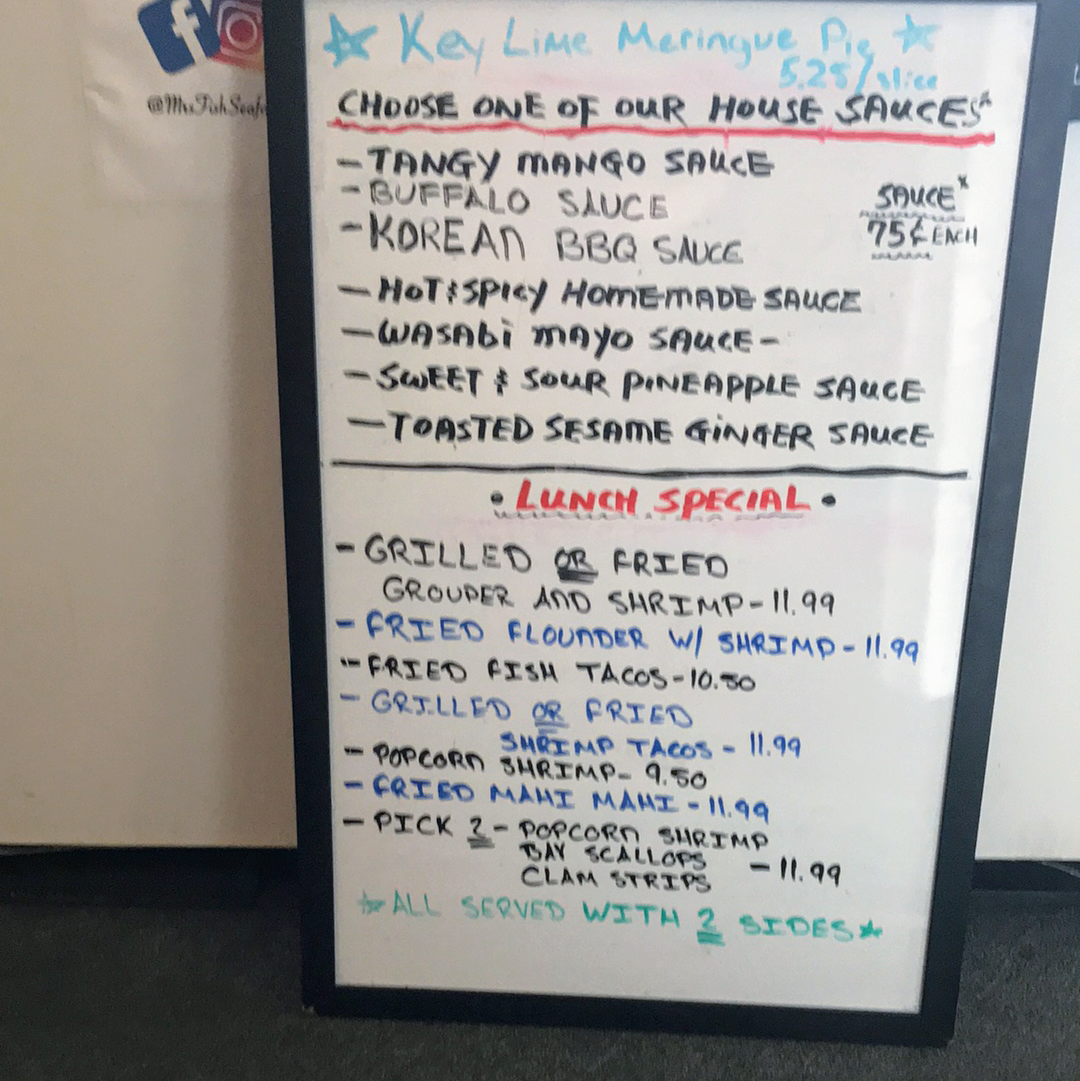 @MrsFishSeafo
☆ Key Lime Meringue Pie ☆
5.25/slice
CHOOSE ONE OF OUR HOUSE SAUCES*
- TANGY MANGO SAUCE
- BUFFALO SAUCE
SAUCE*
75¢ EACH
- KOREAN BBQ SAUCE
- HOT & SPICY HOMEMADE SAUCE
- WASABI MAYO SAUCE -
- SWEET & SOUR PINEAPPLE SAUCE
- TOASTED SESAME GINGER SAUCE
• LUNCH SPECIAL •
- GRILLED OR FRIED
GROUPER AND SHRIMP - 11.99
- FRIED FLOUNDER W/ SHRIMP - 11.99
- FRIED FISH TACOS - 10.50
- GRILLED OR FRIED
SHRIMP TACOS - 11.99
- POPCORN SHRIMP - 9.50
- FRIED MAHI MAHI - 11.99
- PICK 2 - POPCORN SHRIMP
BAY SCALLOPS - 11.99
CLAM STRIPS
☆ ALL SERVED WITH 2 SIDES ☆